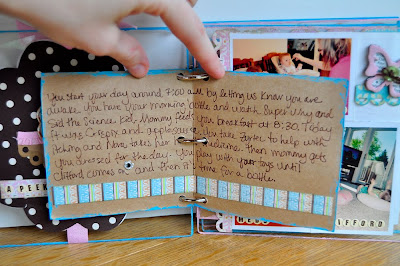 You start your day around 7:00 am by letting us know you are
awake. You have your morning bottle and watch Super Why and
Sid the Science Kid. Mommy feeds you breakfast at 8:30. Today
it was Crispix and applesauce. You take Zantac to help with
itching and Nona takes her medicine. then mommy gets
you dressed for the day. You play with your toys until
Clifford comes on and then it is time for a bottle.
A PEEK
IFFORD